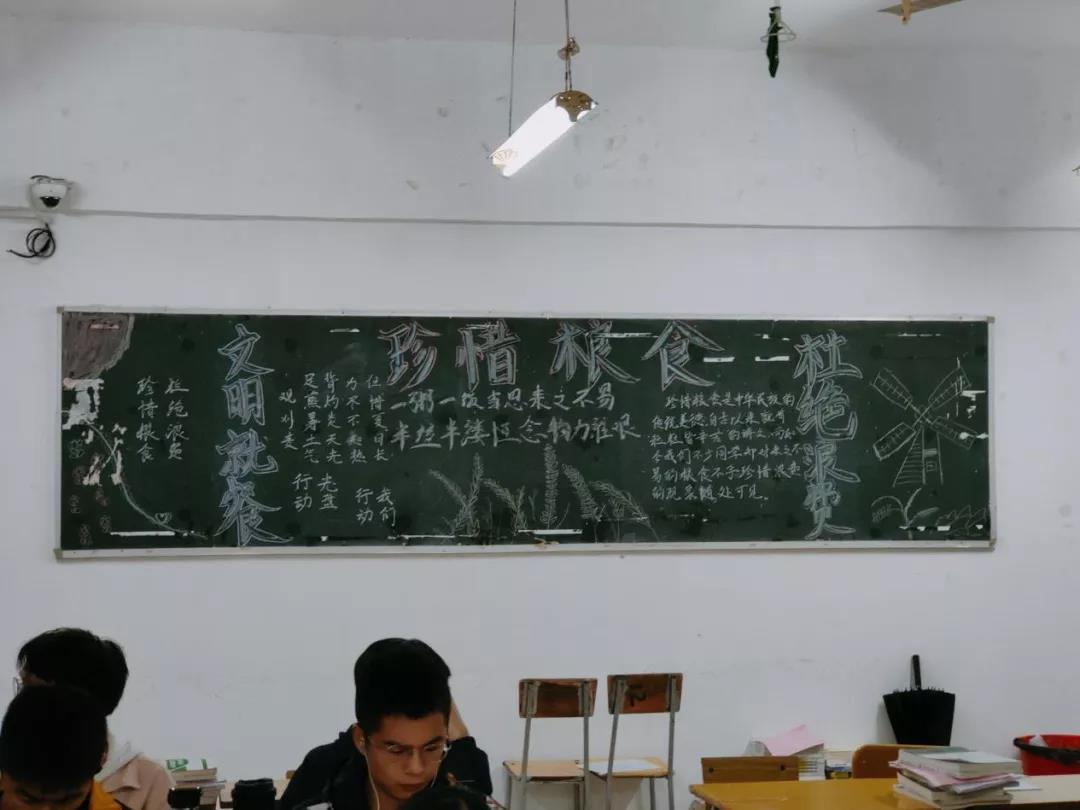 珍惜粮食
文明就餐
杜绝浪费
杜绝浪费
珍惜粮食
但惜夏日长
不知热
背灼炎天光
足蒸暑土气
观刈麦
我们
行动
光盘
行动
一粥一饭当思来之不易
半丝半缕恒念物力维艰
珍惜粮食是中华民族的
传统美德,自古以来就有
粒粒皆辛苦的诗文,而如
今我们不少同学却对来之不
易的粮食不予珍惜浪费
的现象随处可见。